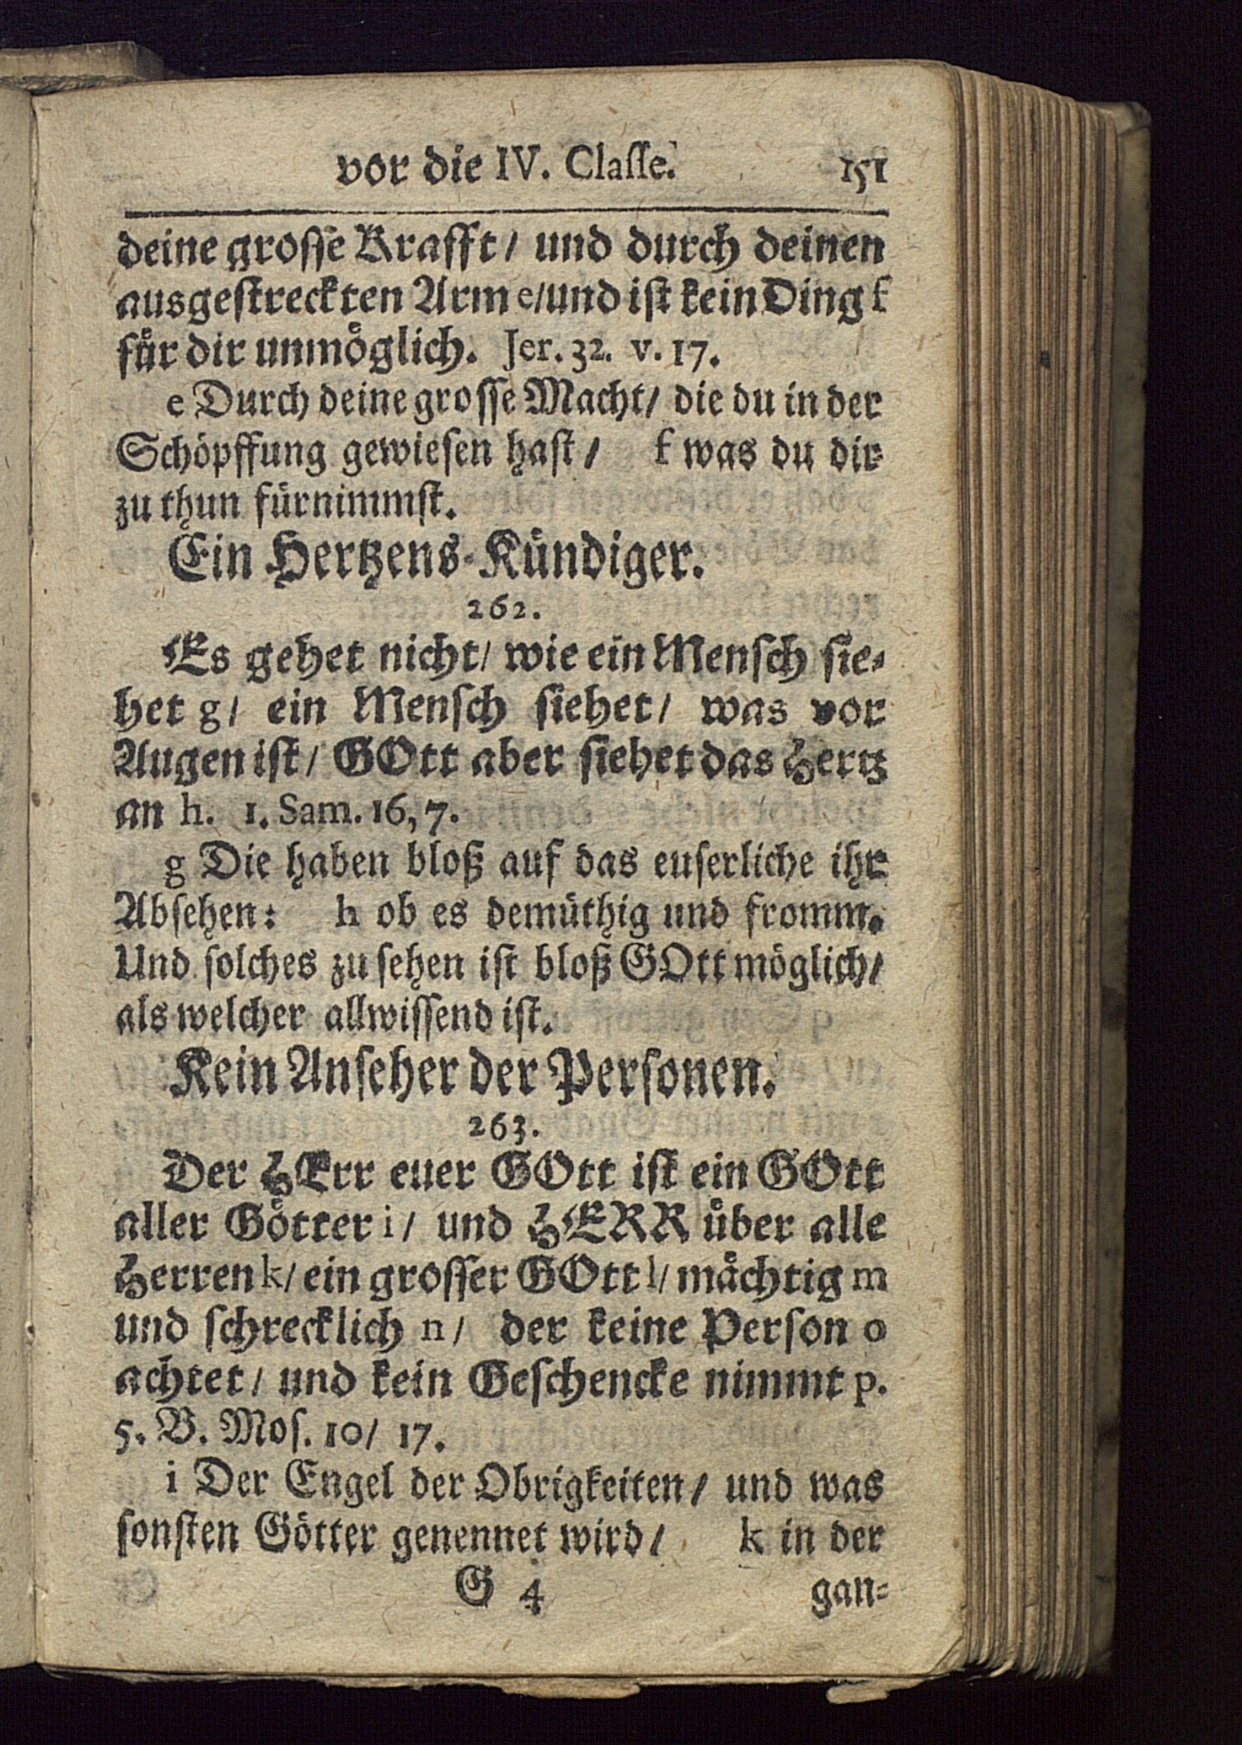 vor die IV. Classe. 151
deine grosse Krafft/ und durch deinen
ausgestreckten Arm e/und ist kein Ding f
für dir unmöglich. Jer. 32. v. 17.
e Durch deine grosse Macht/ die du in der
Schöpffung gewiesen hast/ f was du dir
zu thun fürnimmst.
Ein Hertzens-Kündiger.
262.
Es gehet nicht/ wie ein Mensch sie-
het g/ ein Mensch siehet/ was vor
Augen ist/ GOtt aber siehet das Hertz
an h. 1. Sam. 16, 7.
g Die haben bloß auf das euserliche ihr
Absehen: h ob es demüthig und fromm.
Und solches zu sehen ist bloß GOtt möglich/
als welcher allwissend ist.
Kein Anseher der Personen.
263.
Der HErr euer GOtt ist ein GOtt
aller Götter i/ und HERR über alle
Herren k/ ein grosser GOtt l/ mächtig m
und schrecklich n/ der keine Person o
achtet/ und kein Geschencke nimmt p.
5. B. Mos. 10/ 17.
i Der Engel der Obrigkeiten/ und was
sonsten Götter genennet wird/ k in der
G 4 gan-